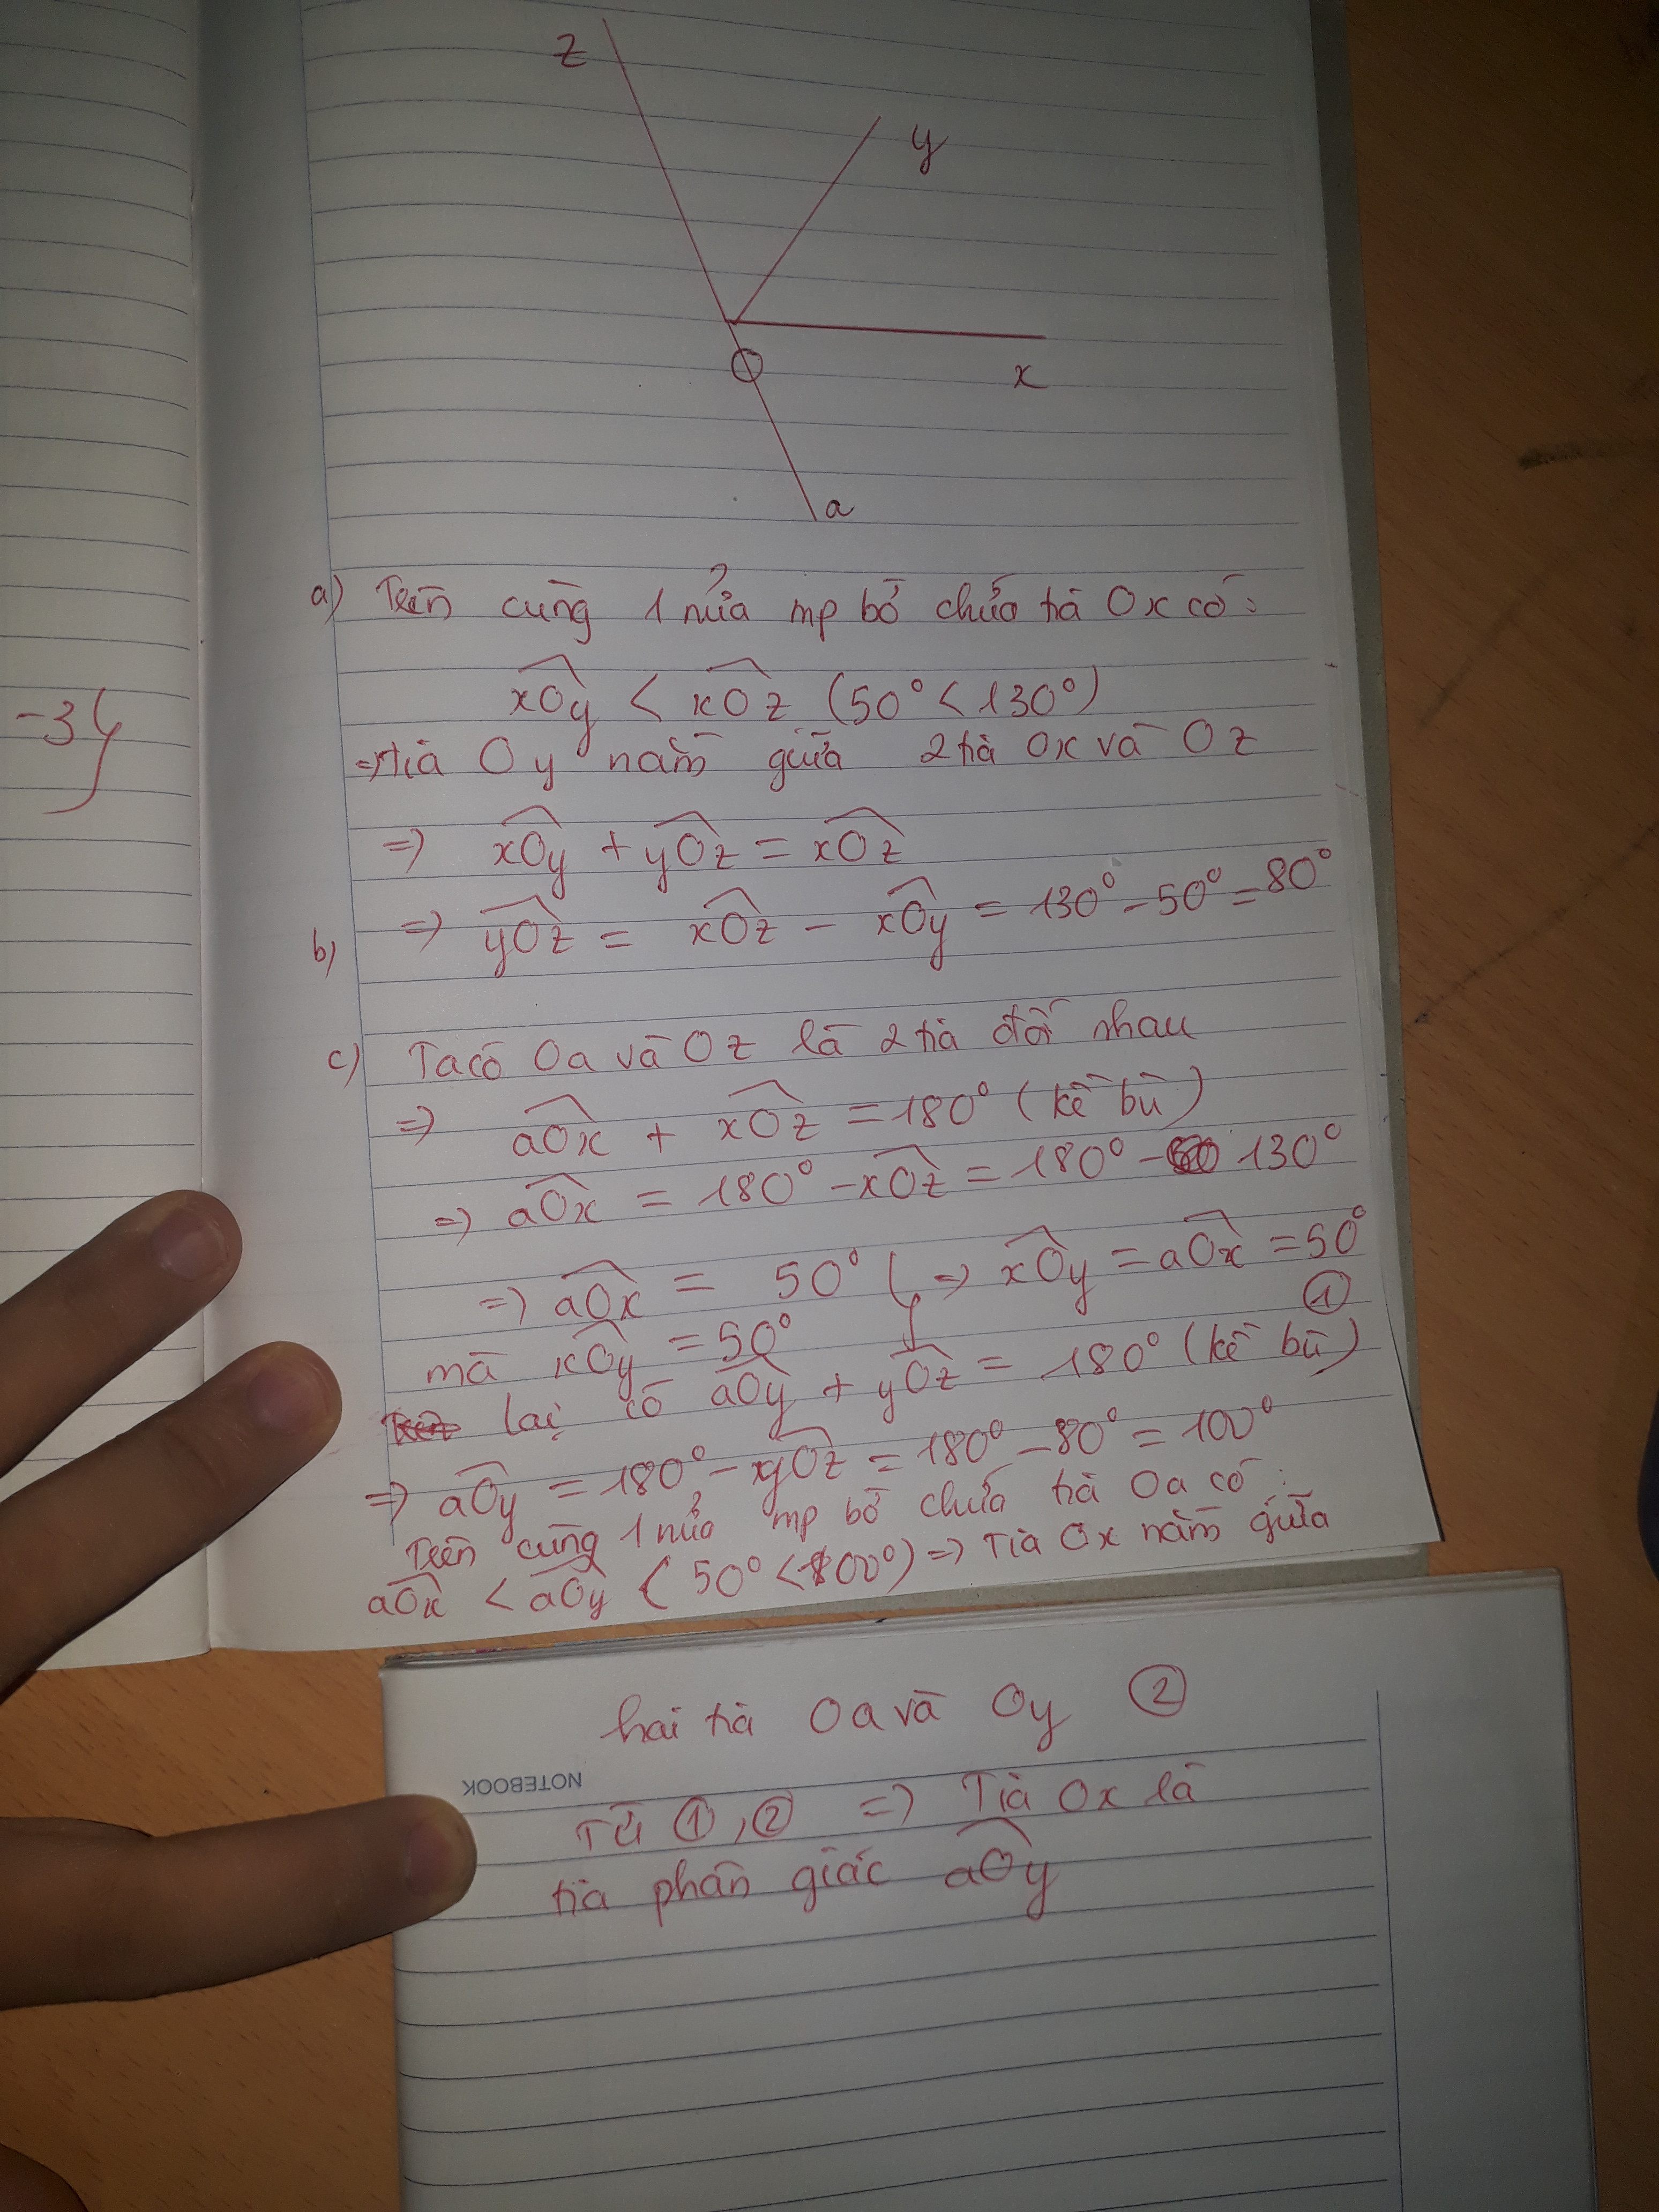 z
y
O
x
a
-3y
a) Trên cùng 1 nửa mp bờ chứa tia Ox có:
xOy < xOz (50° < 130°)
=> tia Oy nằm giữa 2 tia Ox và Oz
=> xOy + yOz = xOz
b) => yOz = xOz - xOy = 130° - 50° = 80°
c) Ta có Oa và Oz là 2 tia đối nhau
=> aOx + xOz = 180° (kề bù)
=> aOx = 180° - xOz = 180° - 130°
=> aOx = 50° => xOy = aOx = 50° ①
mà xOy = 50°
lại có aOy + yOz = 180° (kề bù)
=> aOy = 180° - yOz = 180° - 80° = 100°
Trên cùng 1 nửa mp bờ chứa tia Oa có:
aOx < aOy (50° < 100°) => Tia Ox nằm giữa
hai tia Oa và Oy ②
NOTEBOOK
Từ ①, ② => Tia Ox là
tia phân giác aOy